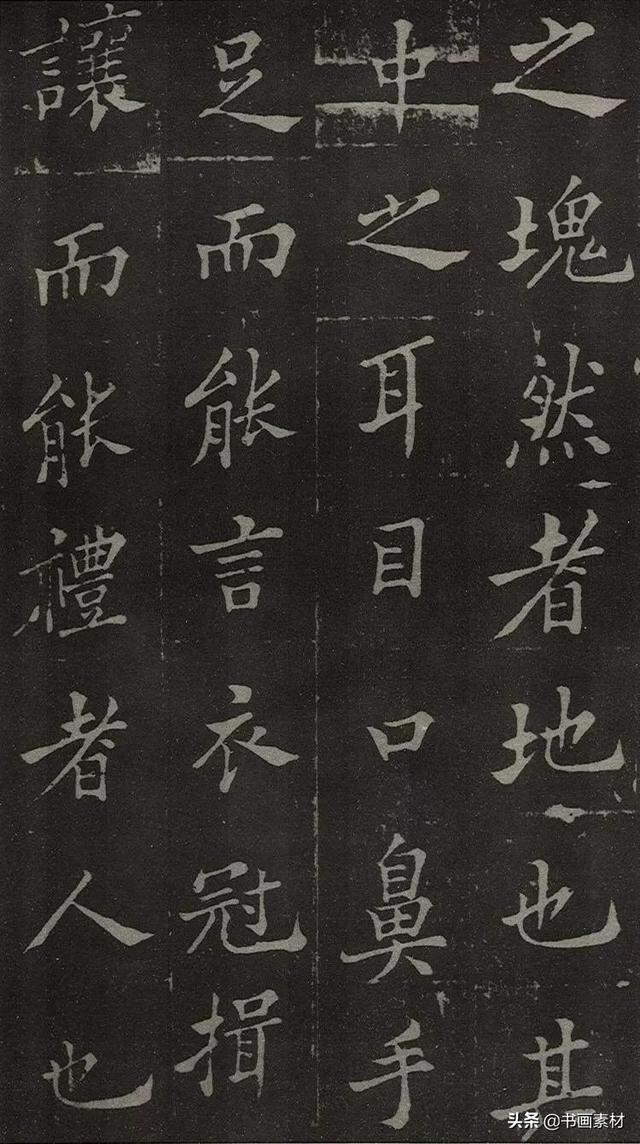 之塊然者地也其
中之耳目口鼻手
足而能言衣冠揖
讓而能禮者人也
头条 @书画素材